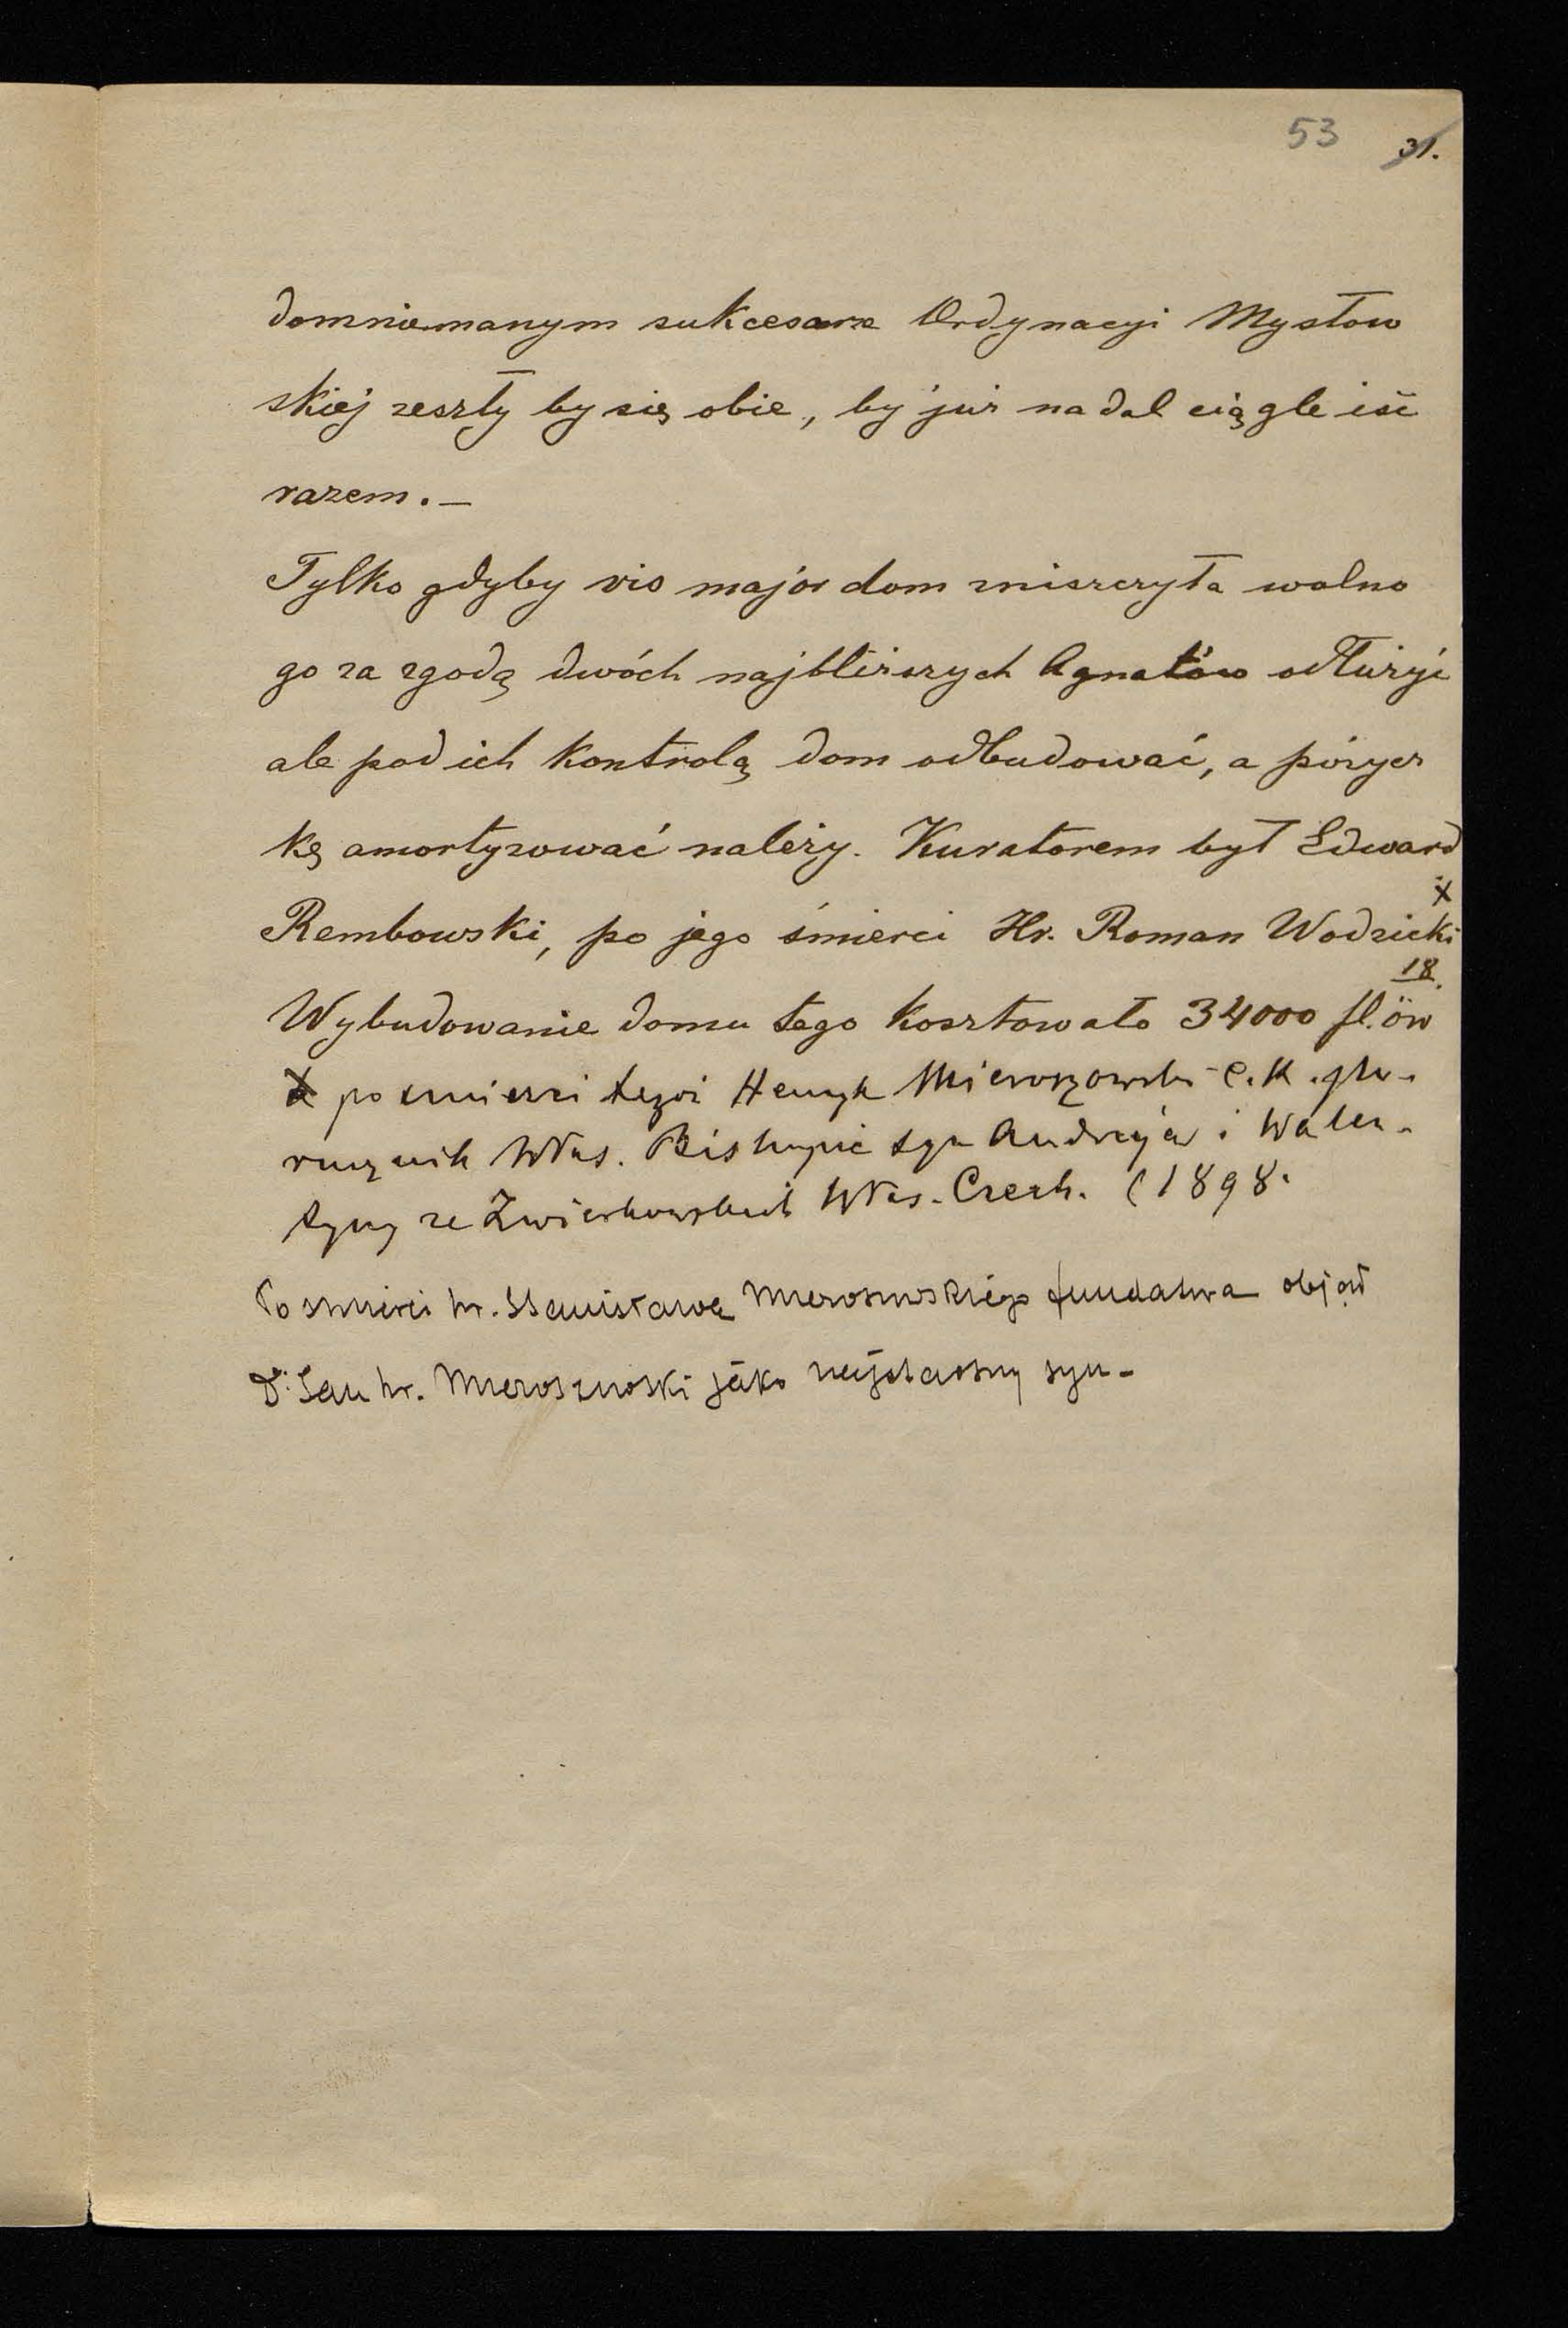 53 31.
domniemanym sukcesorze Ordynacyi Mysłow
skiej zeszły by się obie, by już nadal ciągle iść
razem. —
Tylko gdyby vis major dom zniszczyła wolno
go za zgodą dwóch najbliższych Agnatów odłużyć
ale pod ich kontrolą dom odbudować, a pożycz
kę amortyzować należy. Kuratorem był Edward
Rembowski, po jego śmierci Hr. Roman Wodzicki x
18.
Wybudowanie domu tego kosztowało 34000 fl. öw
x po śmierci tegoż Henryk Mieroszowski c. K.
Właś. Biskupic syn Andrzeja i Walen-
tyny ze Zwierkowskich Właś. Czech. (1898.
Po śmierci hr. Stanisława Mieroszowskiego fundatora objął
Dr. Jan hr. Mieroszowski jako najstarszy syn -